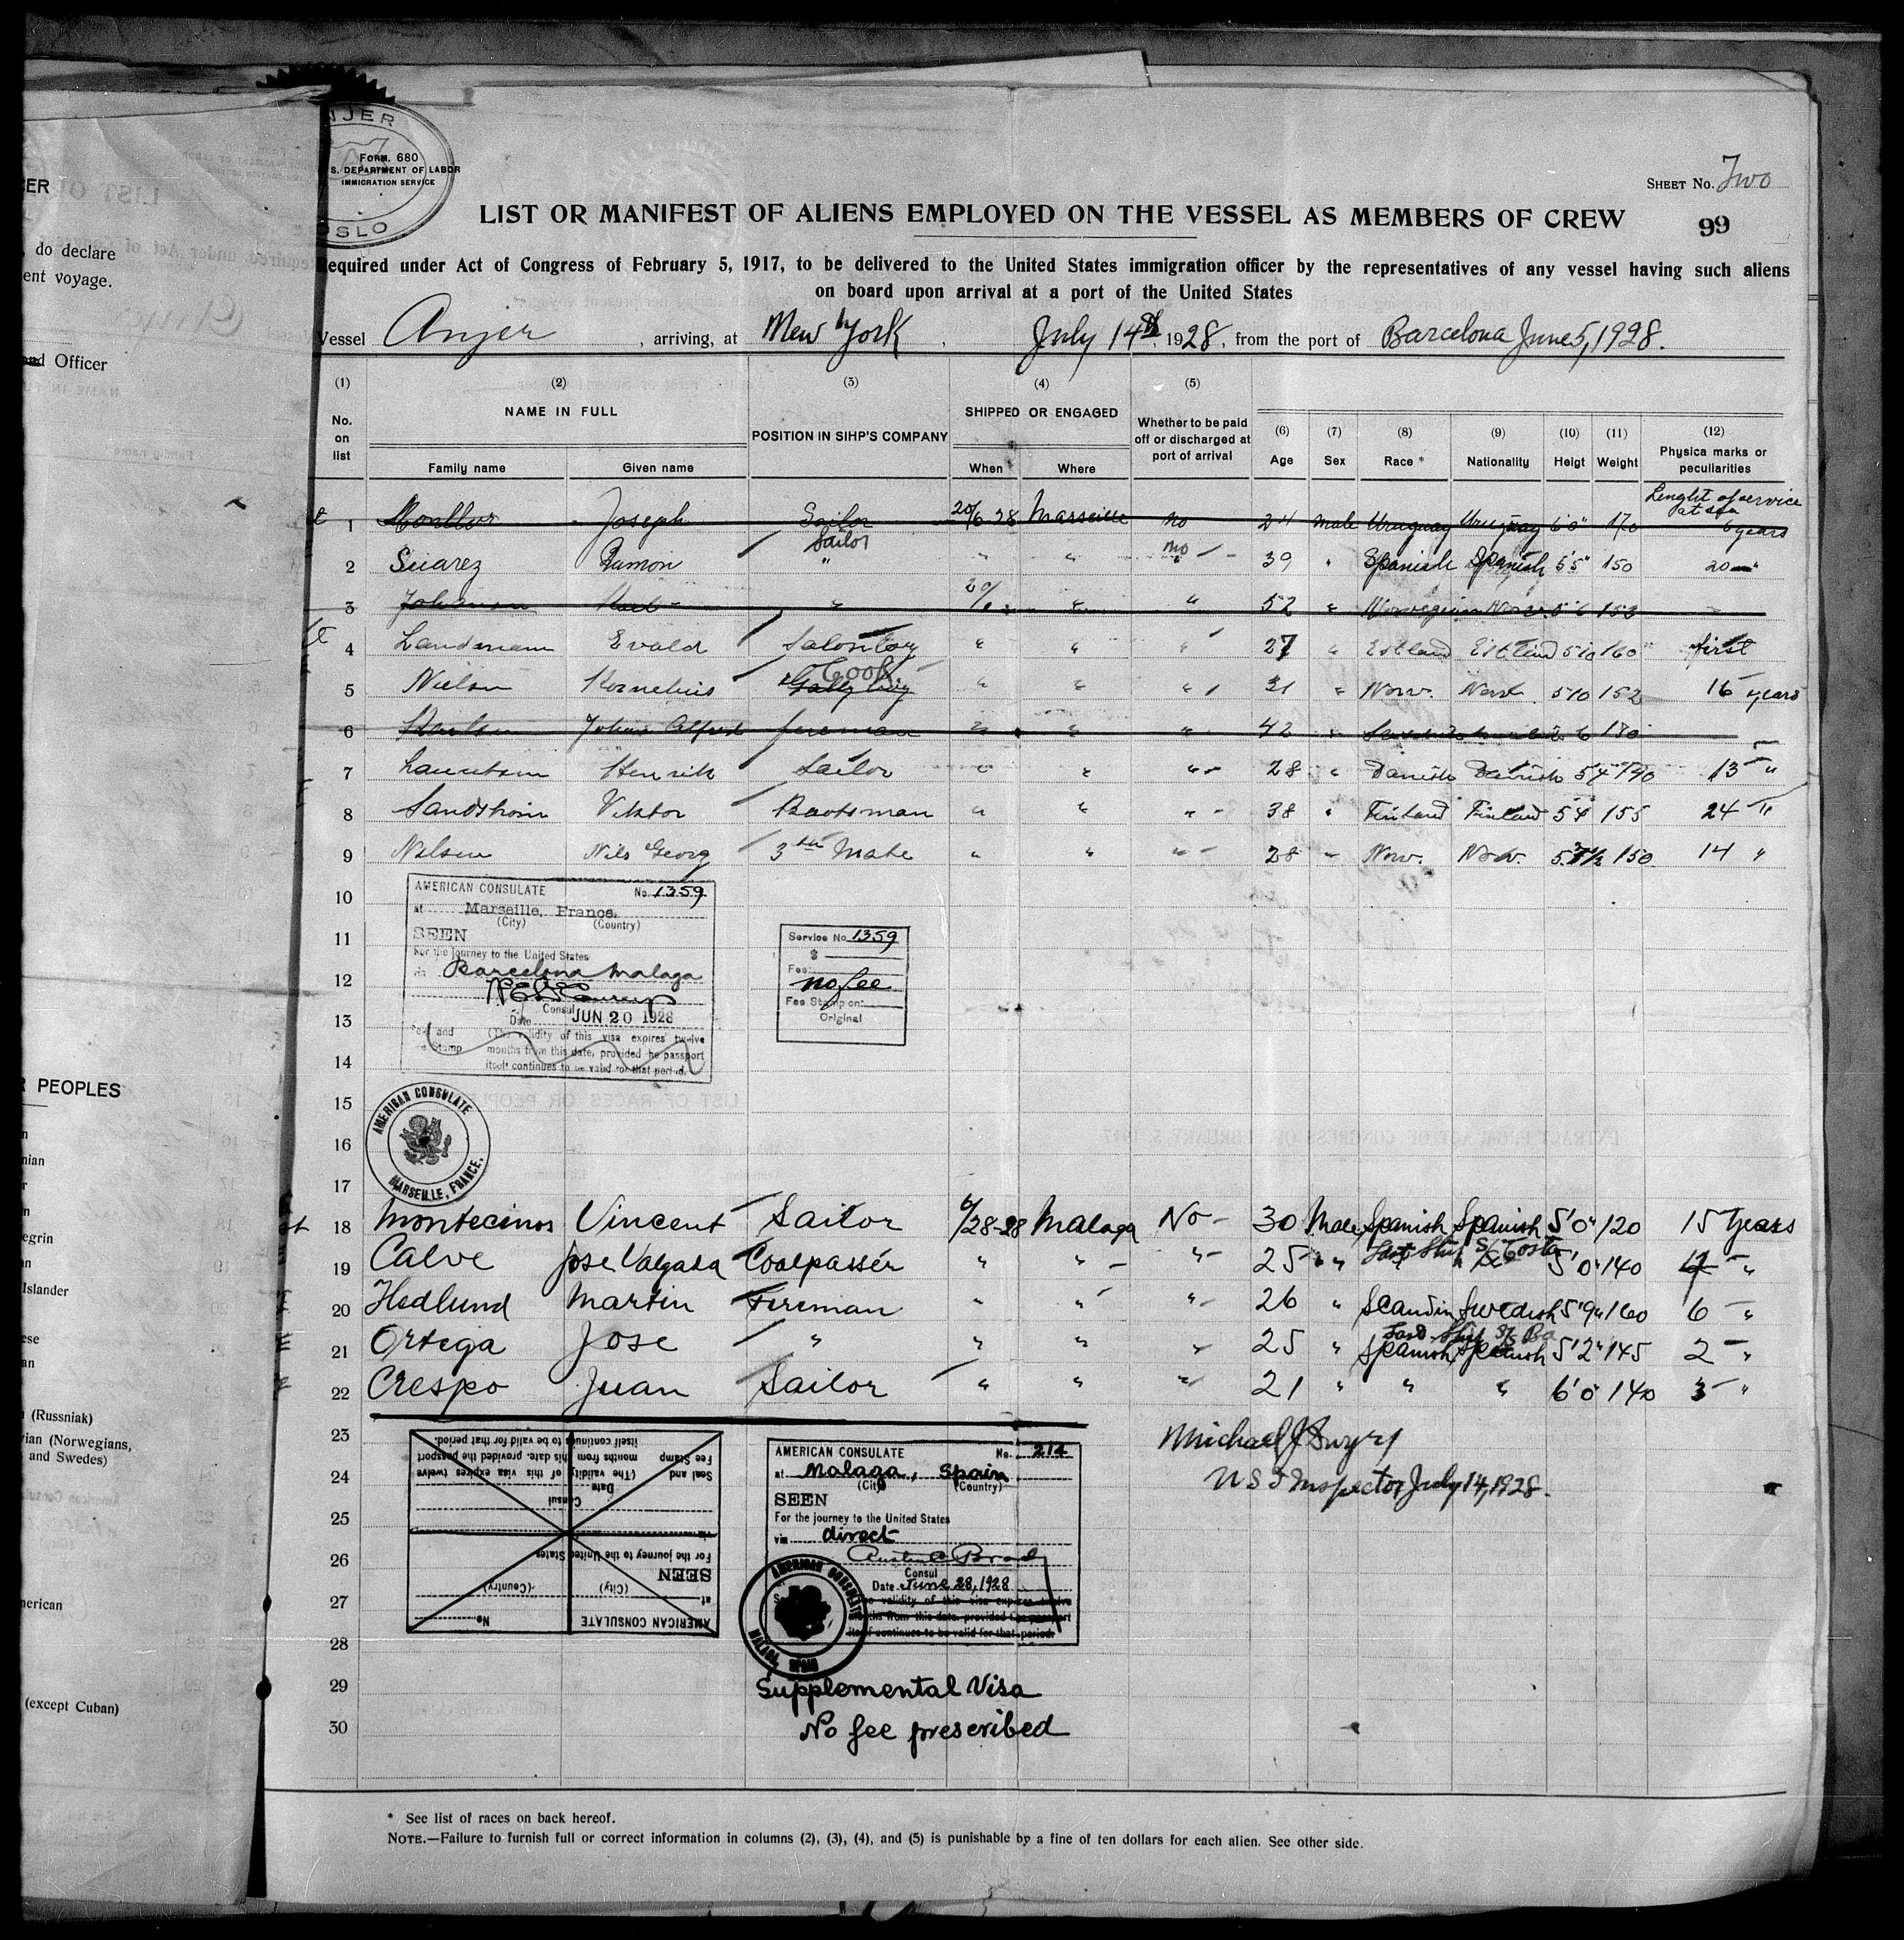 ER
do declare
ent voyage.
nd Officer
R PEOPLES
nian
egrin
Islander
ese
(Russniak)
vian (Norwegians,
and Swedes)
merican
(except Cuban)
NJER
OSLO
FORM. 680
S. DEPARTMENT OF LABOR
IMMIGRATION SERVICE
SHEET No. Two
LIST OR MANIFEST OF ALIENS EMPLOYED ON THE VESSEL AS MEMBERS OF CREW
99
Required under Act of Congress of February 5, 1917, to be delivered to the United States immigration officer by the representatives of any vessel having such aliens
on board upon arrival at a port of the United States
Vessel Anjer, arriving, at New York, July 14th 1928, from the port of Barcelona June 5, 1928.
(1) (2) (3) (4) (5) (6) (7) (8) (9) (10) (11) (12)
No. on list NAME IN FULL Family name Given name POSITION IN SIHP'S COMPANY SHIPPED OR ENGAGED When Where Whether to be paid off or discharged at port of arrival Age Sex Race * Nationality Heigt Weight Physica marks or peculiarities
Lenght of service
at sea
1 Joseph Sailor 20/6-28 Marseille no 24 male Uruguay Uruguay 6'0" 170 6 years
Sailor
2 Suarez Ramon " " " no 39 " Spanish Spanish 5'5" 150 20 "
3 Johansen " 20/6 " " 52 " Norwegian Norw. 5 6 153
4 Landsmann Evald Salonboy " " " 27 " Estland Estland 5'10 160 first
Cook
5 Nielsen Kornelius Gallyboy " " " 31 " Norw. Norw. 5'10 152 16 years
6 Johan Alfred fireman " " " 42 " 180
7 Lauritsen Henrik Sailor " " " 28 " Danish Danish 5'4 190 13 "
8 Sandstrom Viktor Bootsman " " " 38 " Finland Finland 5'4 155 24 "
9 Nilsen Nils Georg 3 Mate " " " 28 " Norw. Norw. 150 14 "
10
11
12
13
14
15
16
17
AMERICAN CONSULATE No. 1359
at Marseille, France.
(City) (Country)
SEEN
For the journey to the United States
via Barcelona Malaga
Consul
Date JUN 20 1928
Seal and Fee Stamp
(The validity of this visa expires twelve
months from this date, provided the passport
itself continues to be valid for that period.
Service No. 1359
$
Fee:
no fee
Fee Stamp on:
Original
AMERICAN CONSULATE
MARSEILLE, FRANCE.
18 Montecinos Vincent Sailor 6/28-28 Malaga No 30 Male Spanish Spanish 5'0" 120 15 Years
19 Calve Jose Valgada Coalpasser " " " 25 " " " 5'0" 140 "
20 Hedlund Martin Fireman " " " 26 " Scandin Swedish 5'9" 160 6 "
21 Ortega Jose " " " " 25 " Spanish Spanish 5'2" 145 2 "
22 Crespo Juan Sailor " " " 21 " " " 6'0" 140 3 "
23
24
25
26
27
28
29
30
US I Inspector July 14, 1928.
AMERICAN CONSULATE No.
at
(City) (Country)
SEEN
For the journey to the United States
via
Consul
Date
Seal and Fee Stamp
(The validity of this visa expires twelve
months from this date, provided the passport
itself continues to be valid for that period.
AMERICAN CONSULATE No. 214
at Malaga, Spain
(City) (Country)
SEEN
For the journey to the United States
via direct
Austin C Brady
Consul
Date June 28, 1928
The validity of this visa expires twelve
months from this date, provided the passport
itself continues to be valid for that period.
AMERICAN CONSULATE
MALAGA, SPAIN
Supplemental Visa
No fee prescribed
* See list of races on back hereof.
NOTE.—Failure to furnish full or correct information in columns (2), (3), (4), and (5) is punishable by a fine of ten dollars for each alien. See other side.